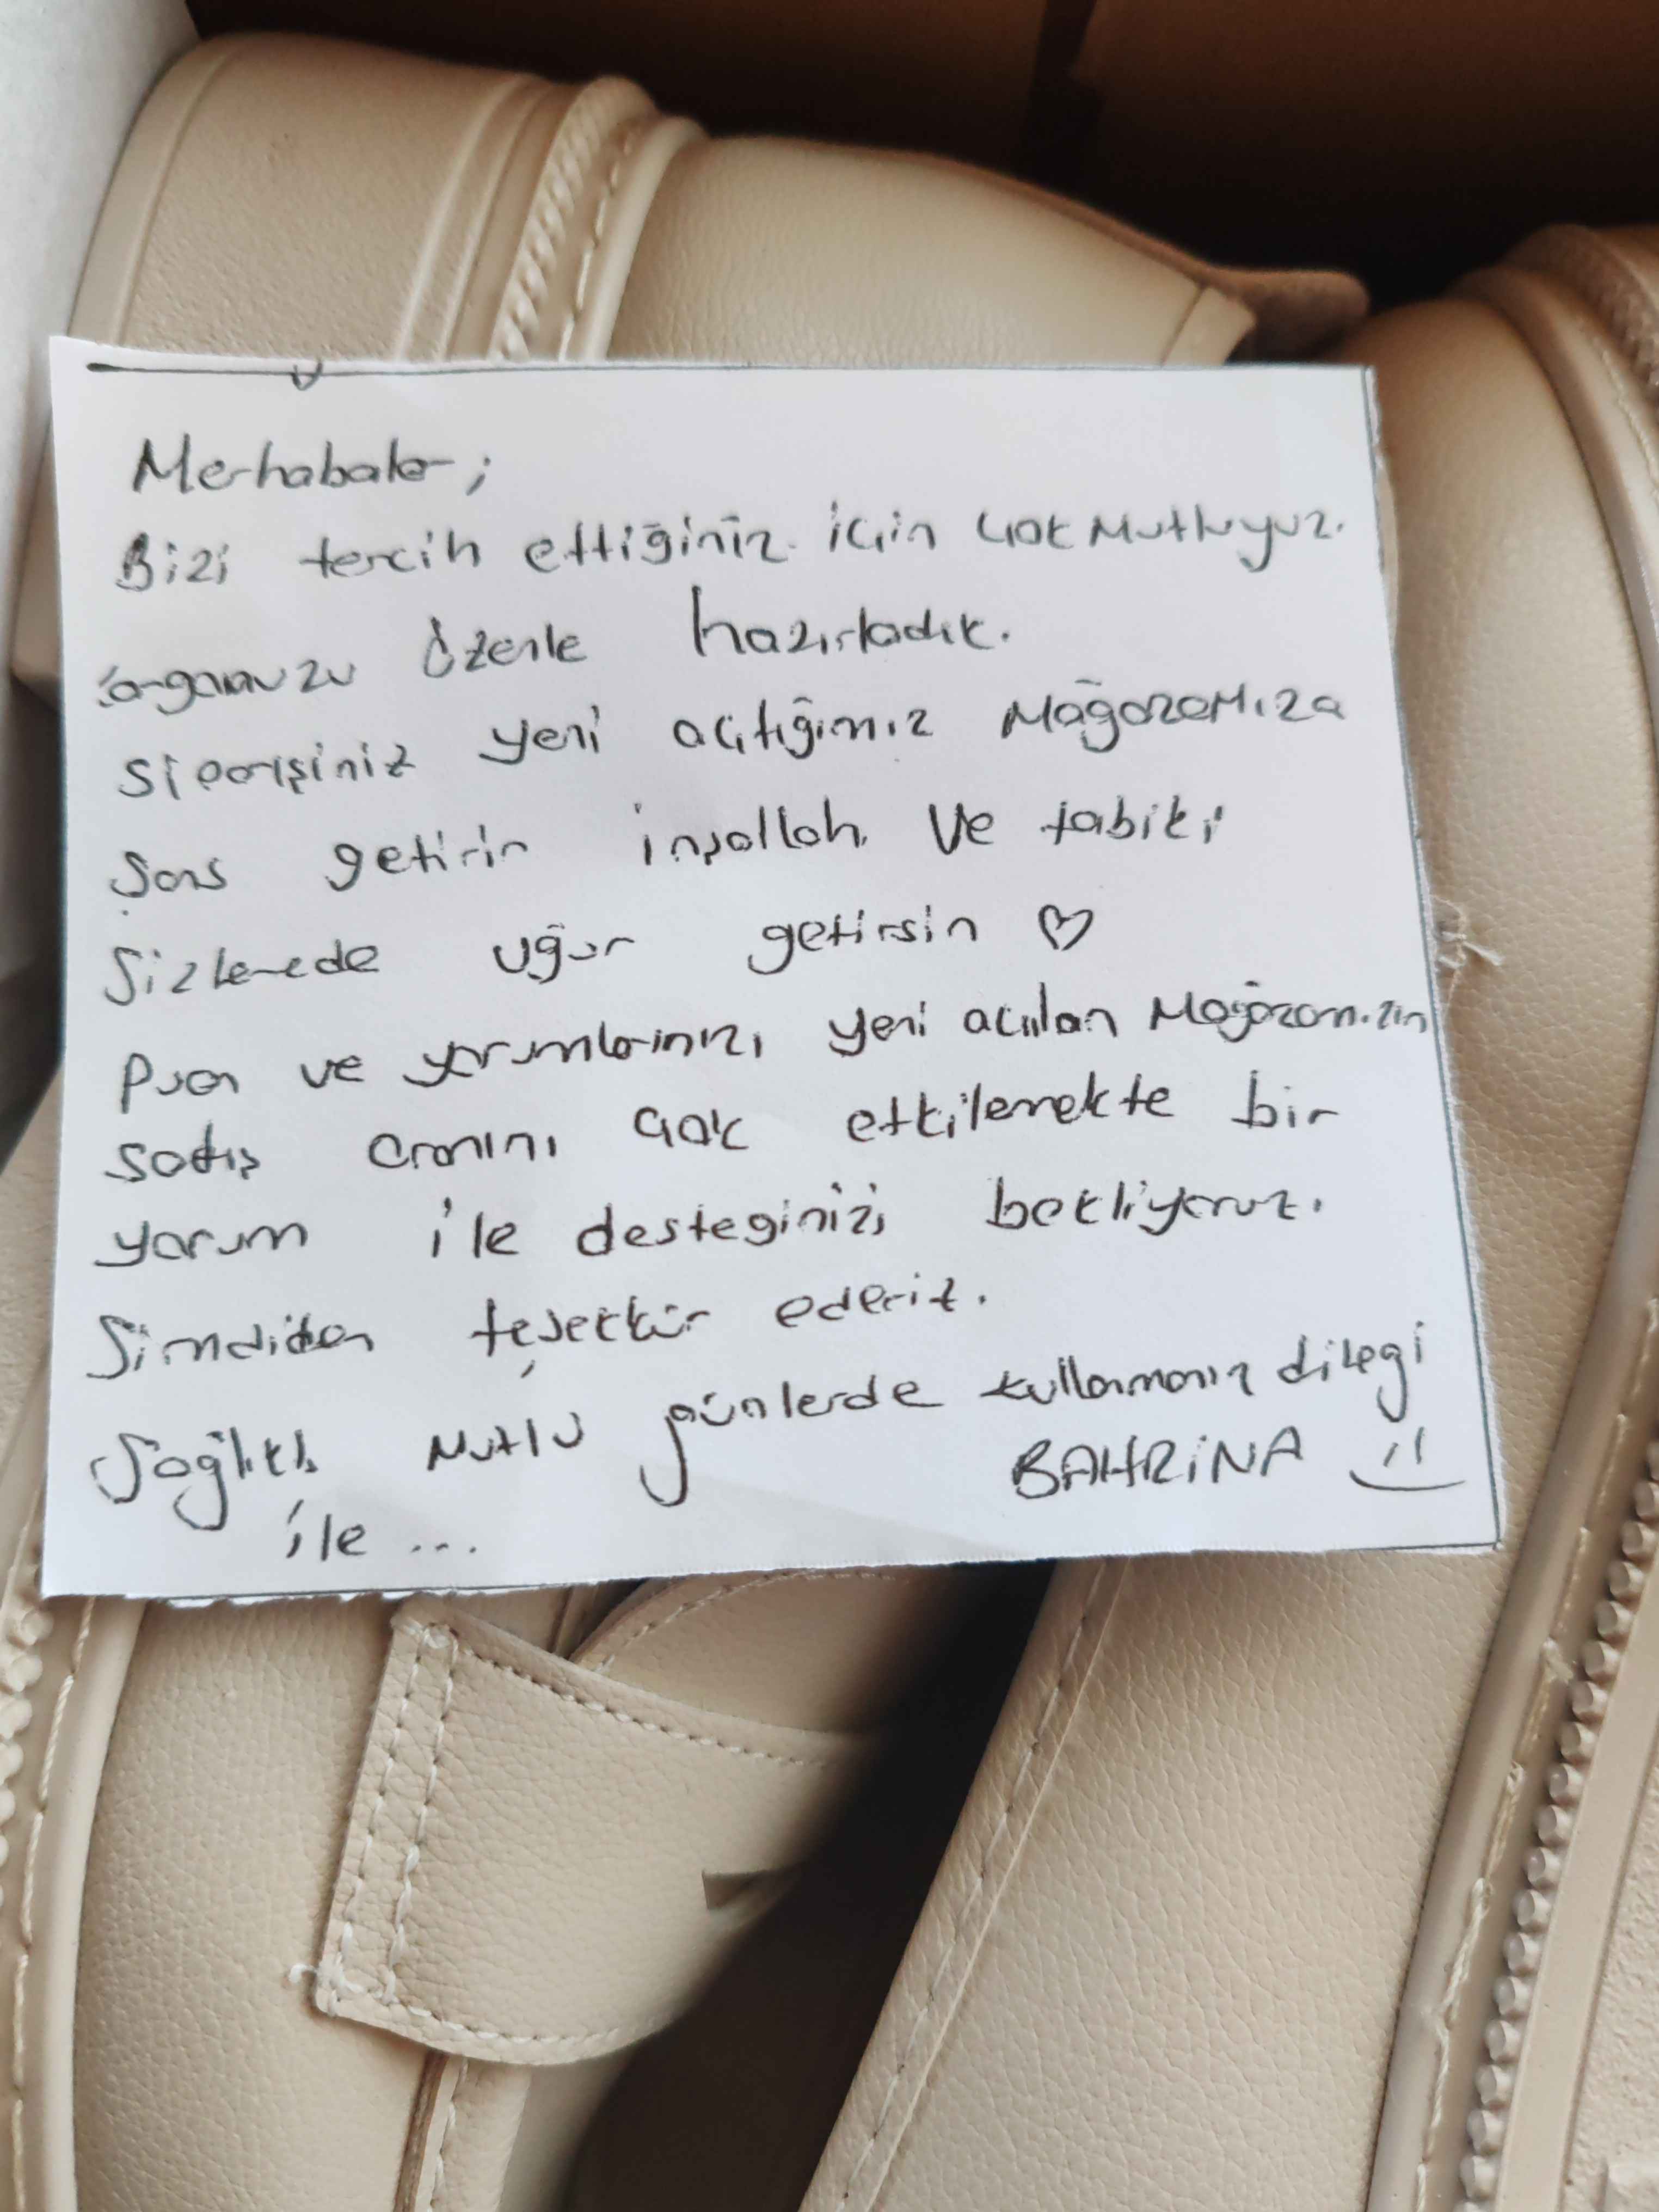 Merhabalar;
Bizi tercih ettiğiniz için çok Mutluyuz.
kargonuzu özenle hazırladık.
Siparişiniz yeni açıtığımız Mağazamıza
Şans getirir inşallah. Ve tabiki
Sizlerede uğur getirsin ♡
Puan ve yorumlarınızı yeni açılan Mağazamızın
satış oranını çok etkilemekte bir
yorum ile desteginizi bekliyoruz.
Şimdiden teşekkür ederiz.
Sağlıklı Mutlu günlerde kullanmanız dilegi
ile ... BAHRİNA :)